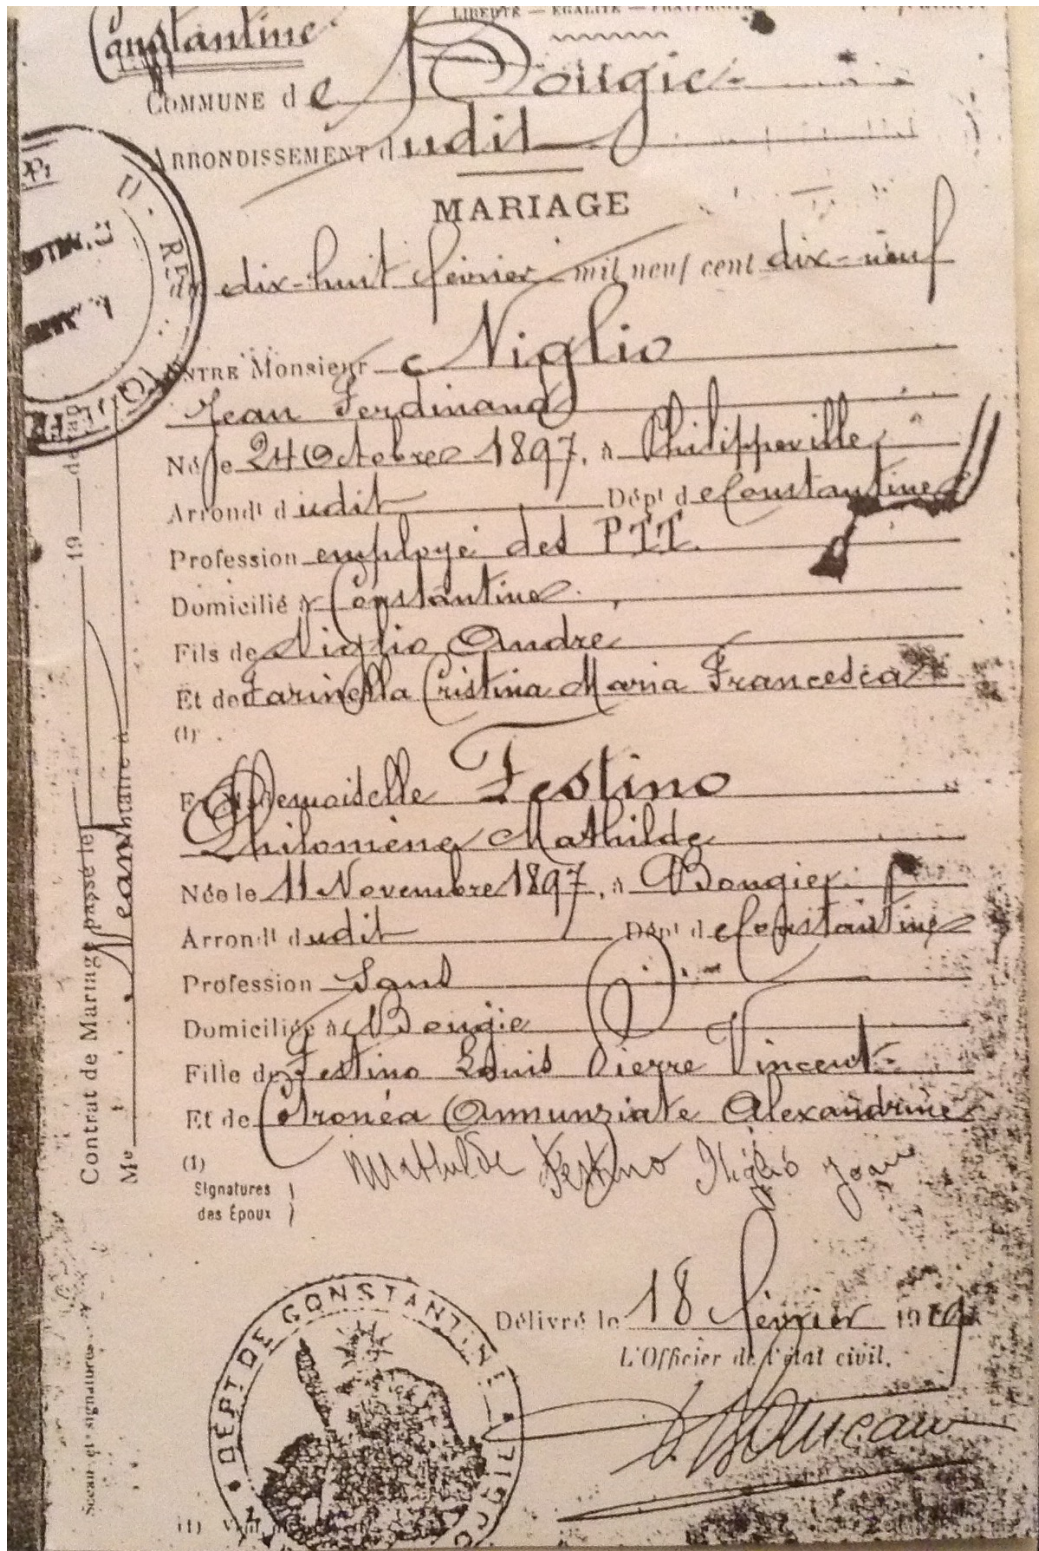 Constantine
LIBERTÉ — ÉGALITÉ — FRATERNITÉ
COMMUNE de Bougie
ARRONDISSEMENT dudit
MARIAGE
du dix-huit février mil neuf cent dix-neuf
ENTRE Monsieur Niglio
Jean Ferdinand
Né le 24 Octobre 1897, à Philippeville
Arrondt dudit Dépt de Constantine
Profession employé des PTT.
Domicilié à Constantine
Fils de Niglio André
Et de Farinella Cristina Maria Francesca
(1)
Et Demoiselle Festino
Philomène Mathilde
Née le 11 Novembre 1897, à Bougie
Arrondt dudit Dépt de Constantine
Profession sans
Domiciliée à Bougie
Fille de Festino Louis Pierre Vincent
Et de Cotronéa Annunziate Alexandrine
(1)
Signatures
des Époux
Mathilde Festino Niglio Jean
Délivré le 18 février 1919
L'Officier de l'état civil,
DÉPT DE CONSTANTINE
Contrat de Mariage passé le 19
Me Néant notaire à
Sceau et signature
(1)